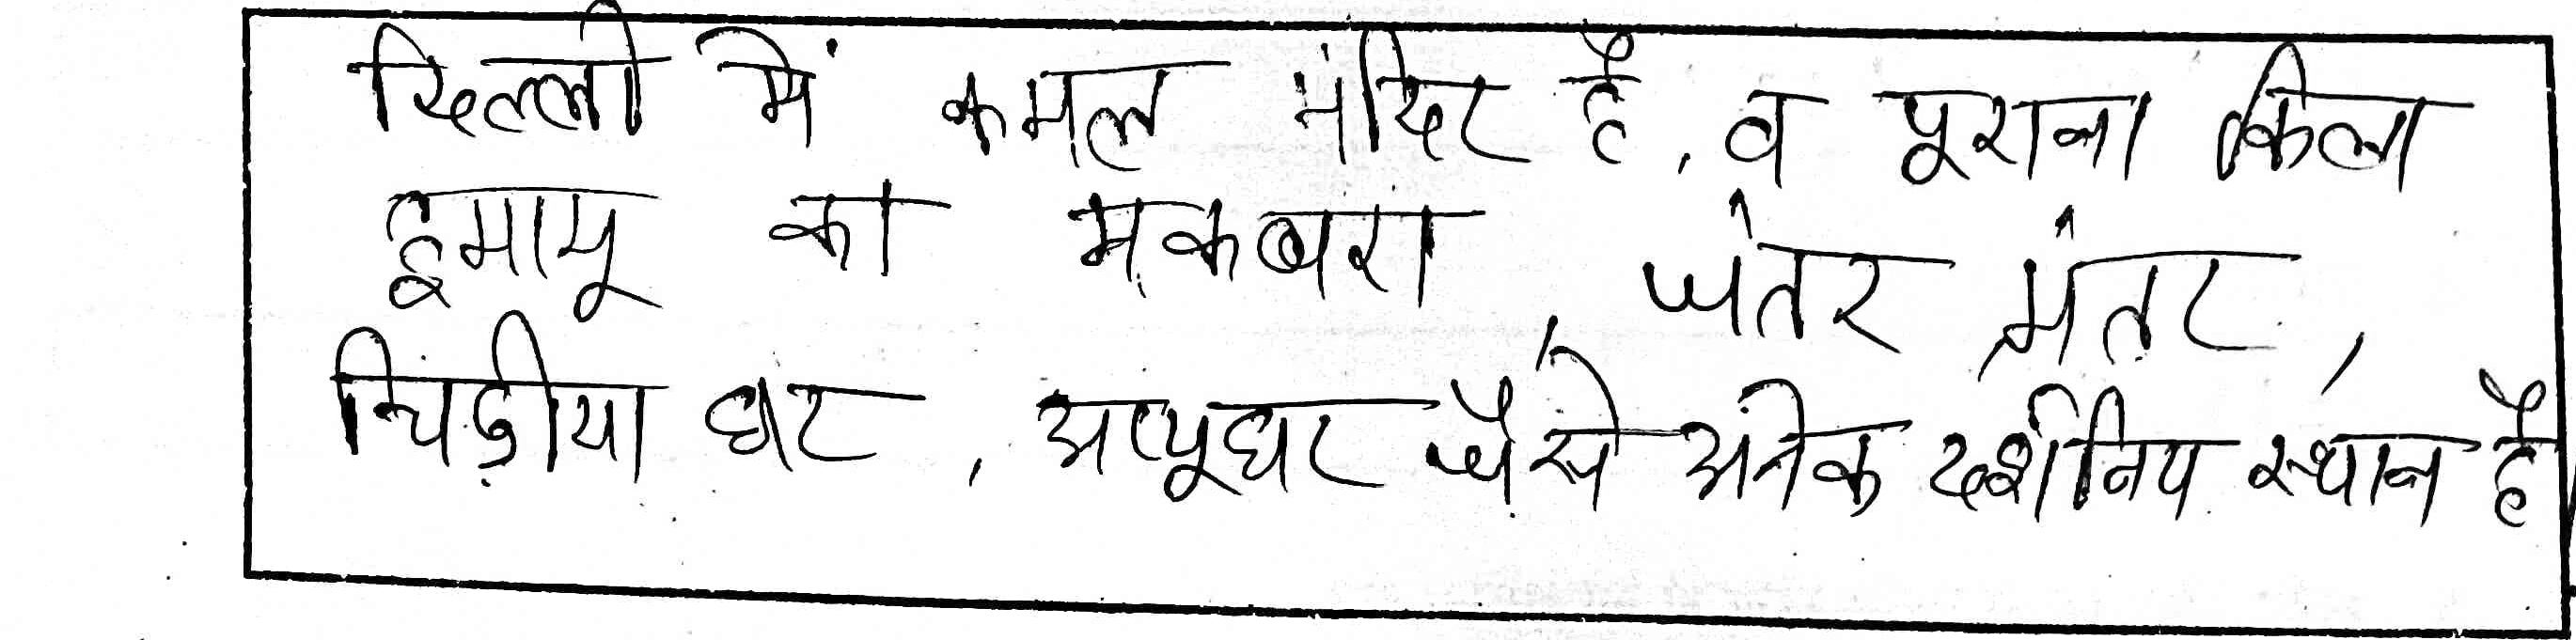 दिल्ली में कमल मंदिर है, व पूराना किला
हुमायू का मकबरा, जंतर मंतर,
चिड़ीया घर, अप्पूघर जैसे अनेक दर्शनिय स्थान है